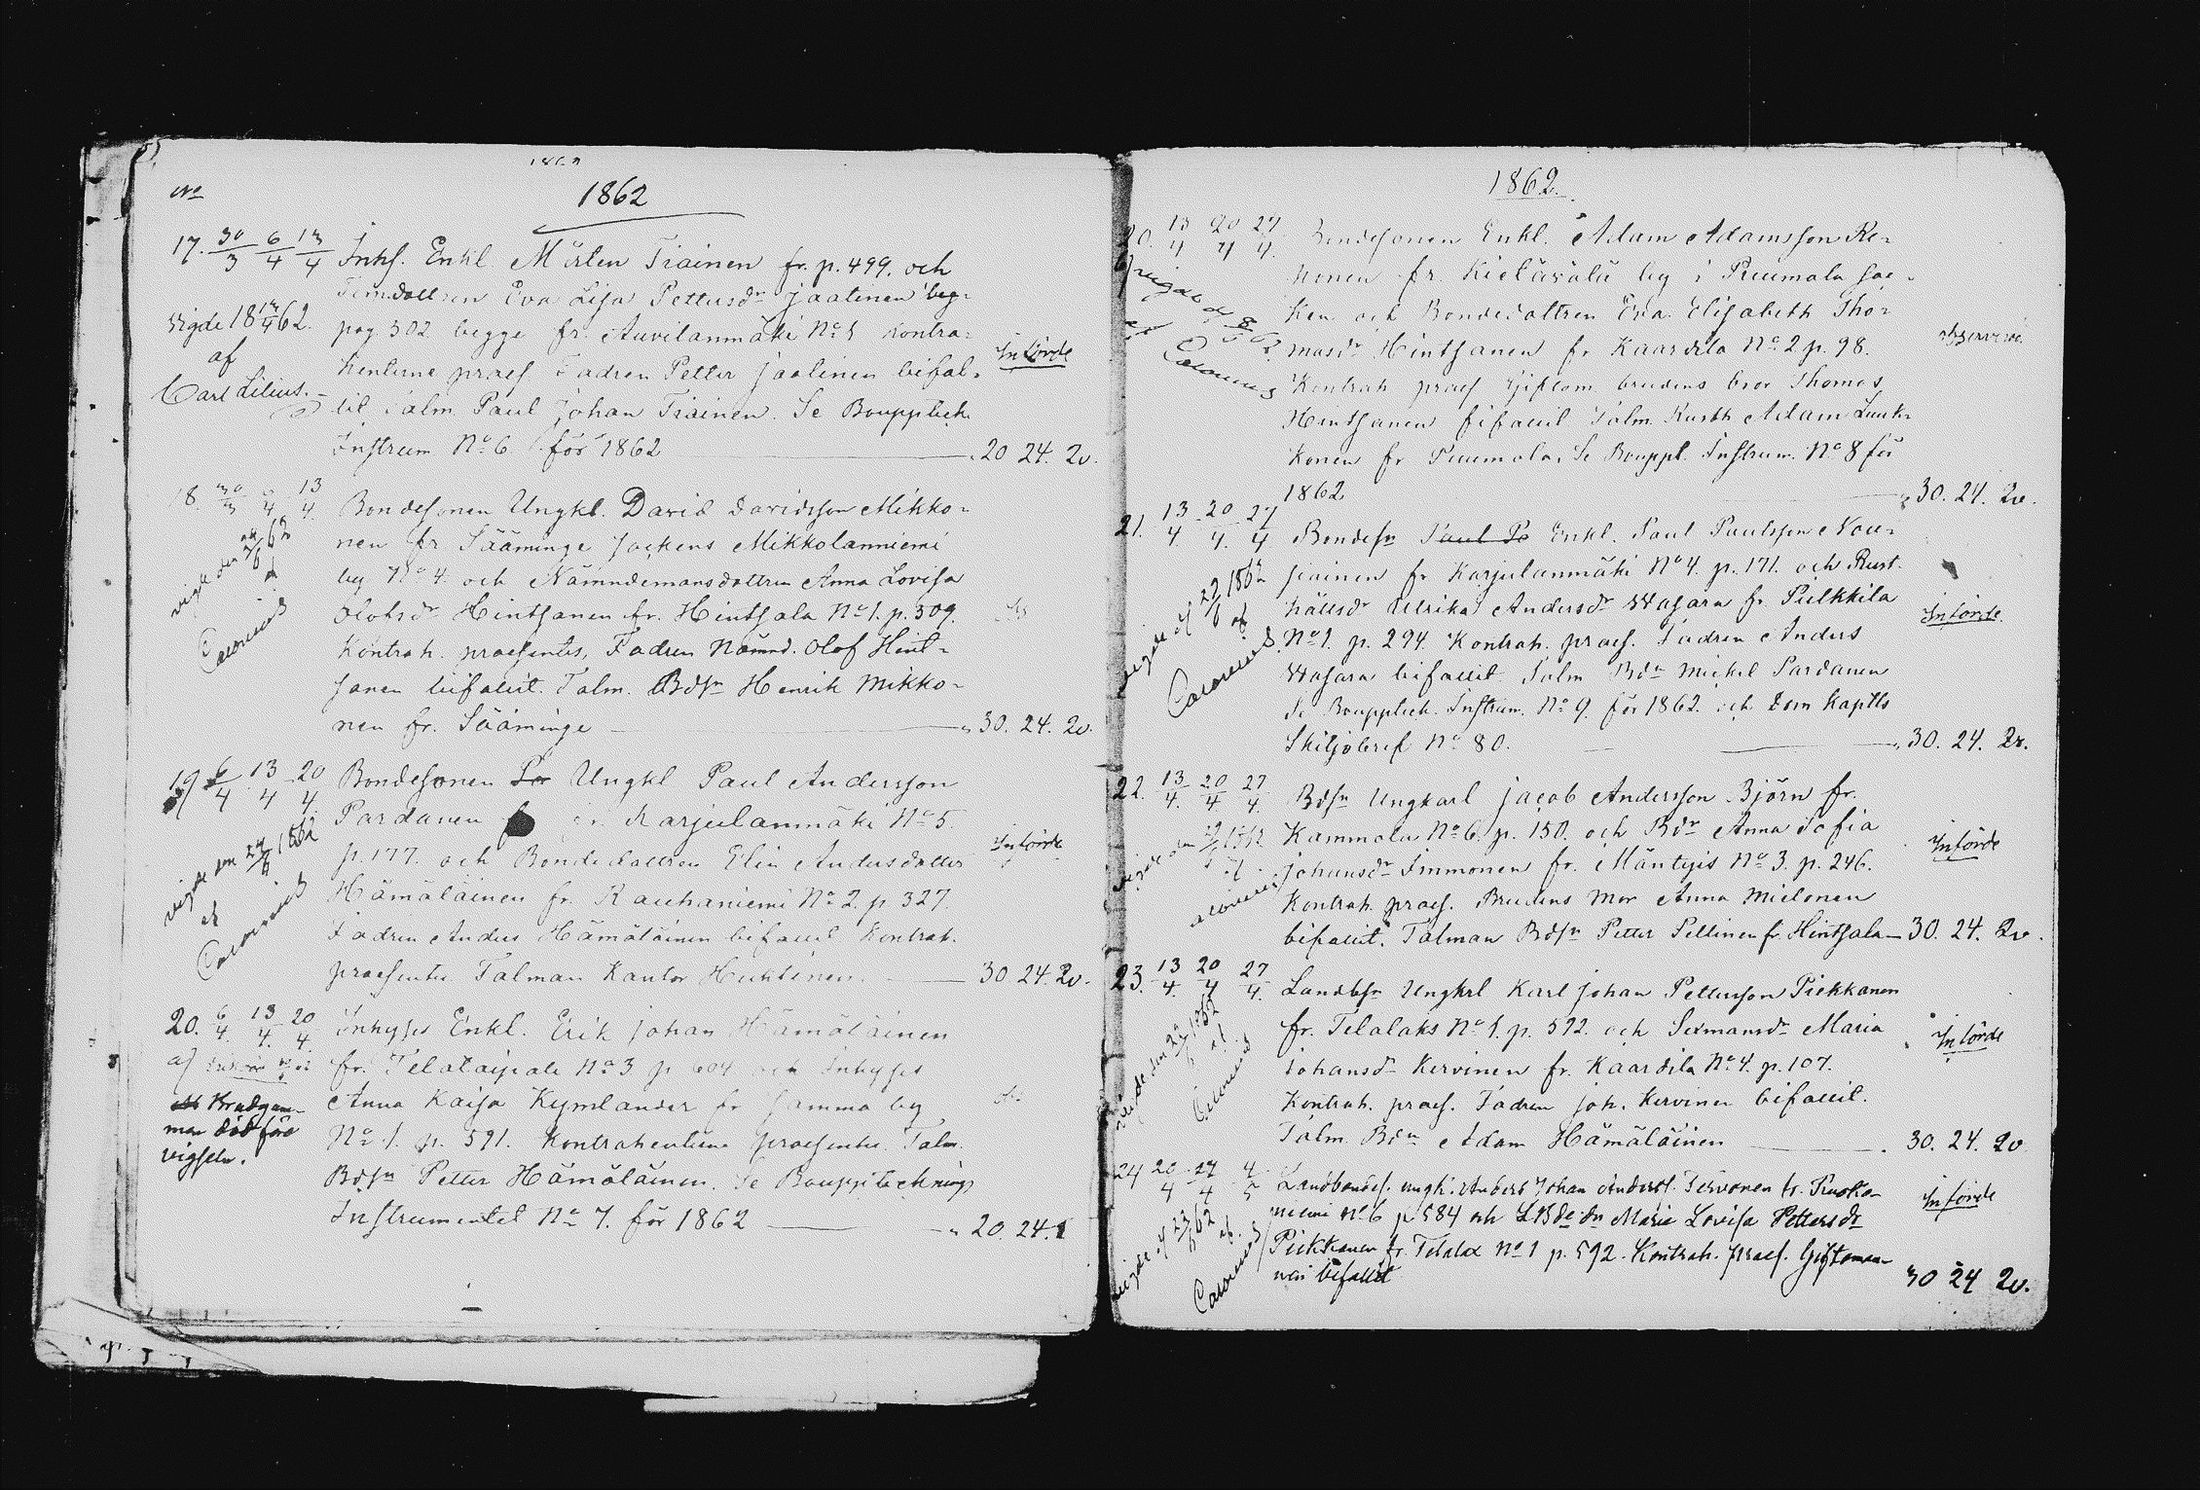 No
1862
17. 30/3 6/4 13/4 Inhs. Enkl. Mårten Tiainen fr. p. 499. och
Timdottren Eva Lisa Pettersdr Jaatinen beg.
pag 302 begge fr. Auvilanmäki No 5 Kontra-
henterne praes Fadren Petter Jaatinen bifal.
til Talm Paul Johan Tiainen. Se Bouppteck
Instrum No 6 för 1862 20 24. 2v.
Vigde 18 13/4 62.
af
Carl Lilius.
Införde
18. 30/3 6/4 13/4 Bondesonen Ungkl. David Davidsson Mikko-
nen fr Sääminge Sockens Mikkolanniemi
by No 4. och Nämndemansdottren Anna Lovisa
Olofsdr Hintsanen fr. Hintsala No 1. p. 309.
Kontrah. praesentes, Fadren Nämnd. Olof Hint-
sanen bifallit. Talm. Bdsn Henrik Mikko-
nen fr. Sääminge 30. 24. 2v.
vigde den
af
Calonius
19 6/4 13/4 20/4 Bondesonen Ungkl Paul Andersson
Pardanen fr. Karjulanmäki No 5
p. 177. och Bondedottren Elin Andersdotter
Hämäläinen fr. Rauhaniemi No 2. p 327.
Fadren Anders Hämäläinen bifallit Kontrah.
praesentes Talman Kantor Huttinen 30 24. 2v.
vigde den 24/6 1862
af
Calonius
Införde
20. 6/4. 13/4. 20/4 Inhyses Enkl. Erik Johan Hämäläinen
fr. Telataipale No 3 p 604 och Inhyses
Anna Kaisa Kymlander fr Samma by
No 1. p. 591. Kontrahenterne praesentes Talm.
Bdsn Petter Hämäläinen. Se Boupptecknings
Instrumentet No 7. för 1862 20. 24. 1
Brudgum-
men död före
vigseln.
1862.
20. 13/4 20/4 27/4. Bondesonen Enkl. Adam Adamsson Re-
ponen fr. Kietävälä by i Puumala Soc-
ken och Bondedottren Eva Elisabeth Tho-
masdr Hintsanen fr Kaartila No 2 p. 98.
Kontrah praes Giftom. brudens bror Thomas
Hintsanen bifallit Talm. Rusth Adam Luuk-
konen fr Puumala. Se Bouppt. Instrum. No 8 för
1862 30. 24. 2v.
vigde d
af
Calonius
observerad
21. 13/4 20/4. 27/4 Bondesn Paul Pa Enkl. Paul Paulsson Nou-
siainen fr Karjulanmäki No 4. p. 171. och Rust-
hållsdr Ulrika Andersdr Wasara fr. Pulkkila
No 1. p. 294. Kontrah. praes. Fadren Anders
Wasara bifallit Talm Bdn Mickel Pardanen
Se Bouppteck. Instrum. No 9. för 1862. och Dom Kaptls
Skiljobref No 80. 30. 24. 2v.
vigde d 22/6 1862
af
Calonius
Införde
22. 13/4. 20/4 27/4. Bdsn Ungkarl Jacob Andersson Björn fr.
Kammola No 6. p. 150. och Bdr Anna Sofia
Johansdr Immonen fr. Mäntyis No 3. p. 246.
Kontrah. praes. Brudens Mor Anna Mielonen
bifallit. Talman Bdsn Petter Pellinen fr. Hintsala 30. 24. 2v.
Införde
23. 13/4. 20/4 27/4. Landbsn Ungkrl Karl Johan Pettersson Piekkanen
fr. Telalaks No 1. p. 592. och Sexmansdr Maria
Johansdr Kervinen fr. Kaartila No 4. p. 107.
Kontrah. praes. Fadren Joh. Kervinen bifallit.
Talm. Bdn Adam Hämäläinen 30. 24. 2v
Införde
24 20/4 27/4 4/5 Landbondes. ungk. Anders Johan Anderss. Tervonen fr. Ruoko-
niemi No 6 p 584 och LBdedr Maria Lovisa Pettersdr
Piekkanen fr. Telala No 1 p. 592. Kontrah. praes. Giftoman-
nen bifallit 30 24 2v.
vigde d 23/6 62
af
Calonius
Införde